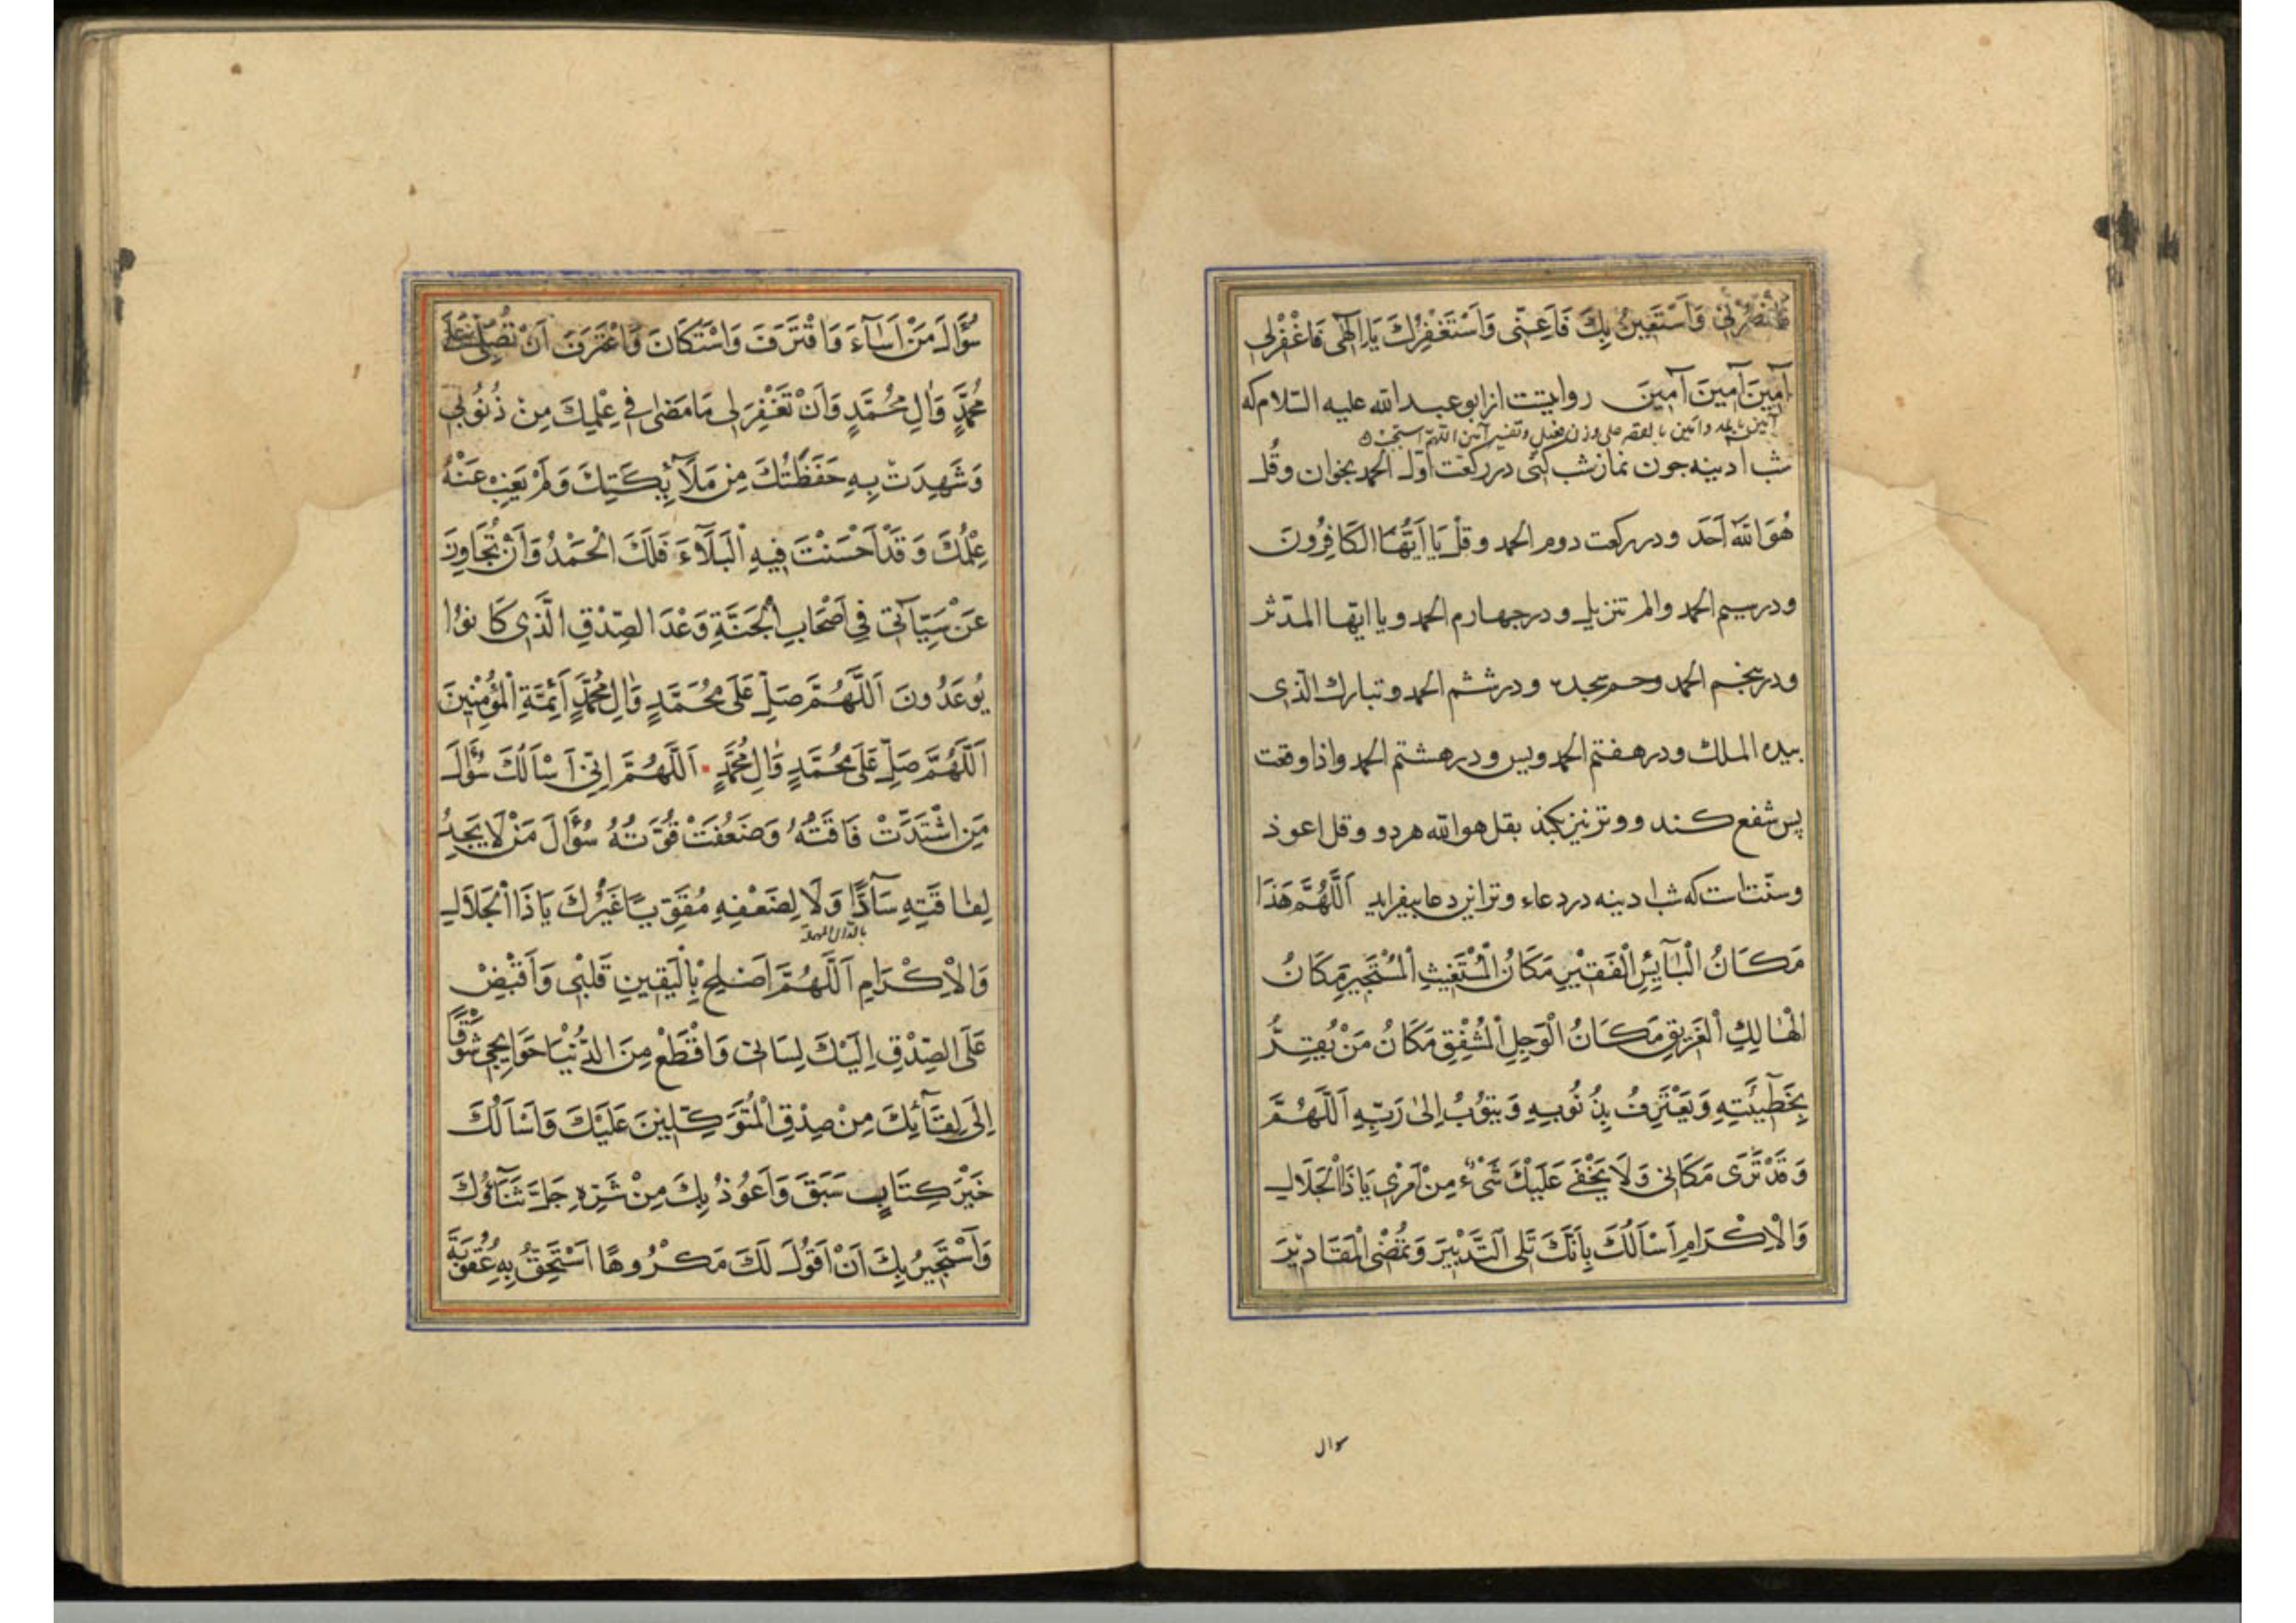 فَانْصُرْنِي وَاَسْتَعِينُ بِكَ فَاَعِنّى وَاَسْتَغْفِرُكَ يَا اِلٰهى فَاغْفِرْلِي
آمِينَ آمِينَ آمِينَ روايتست از ابو عبد الله عليه السّلام كه
آمين بالمد وامين بالقصر على وزن وتفسير آمين اللهمّ استجب
شب ادينه جون نماز شب كنى در ركعت اوّل الحمد بخوان وقُل
هُوَ اللهُ اَحَد ودر ركعت دوم الحمد وقل يَا اَيُّهَا الكَافِرُونَ
ودر سيم الحمد والم تنزيل ودر جهارم الحمد ويا ايّها المدّثر
ودر پنجم الحمد وحم سجده ودر ششم الحمد وتبارك الّذى
بيده الملك ودر هفتم الحمد ويس ودر هشتم الحمد واذا وقعت
پس شفع كند ووتر نيز بكند بقل هو الله هر دو وقل اعوذ
وسنّت است كه شب ادينه در دعاء وتر اين دعا بيفزايد اَللّٰهُمَّ هَذَا
مَكَانُ الْبَآئِسِ الْفَقِيْرِ مَكَانُ الْمُسْتَغِيثِ الْمُسْتَجِيرِ مَكَانُ
الْهَالِكِ الْغَرِيقِ مَكَانُ الْوَجِلِ الْمُشْفِقِ مَكَانُ مَنْ يُقِرُّ
بِخَطِيئَتِهِ وَيَعْتَرِفُ بِذُنُوبِهِ وَيَتُوْبُ اِلىٰ رَبِّهِ اَللّٰهُمَّ
وَقَدْ تَرَى مَكَانى وَلَا يَخْفَى عَلَيْكَ شَىْءٌ مِنْ اَمْرِى يَا ذَا الْجَلَالِ
وَالْاِكْرَامِ اَسْاَلُكَ بِاَنَّكَ تَلى التَّدْبِيرَ وَتُمْضِى الْمَقَادِيْرَ
سوال
سُؤَالَ مَنْ اَسَآءَ وَاقْتَرَفَ وَاسْتَكَانَ وَاعْتَرَفَ اَنْ تُصَلِّىَ عَلَى
مُحَمَّدٍ وَاٰلِ مُحَمَّدٍ وَاَنْ تَغْفِرَ لى مَا مَضىٰ فِى عِلْمِكَ مِنْ ذُنُوْبِى
وَشَهِدَتْ بِهِ حَفَظَتُكَ مِنْ مَلَآئِكَتِكَ وَلَمْ يَغِبْ عَنْهُ
عِلْمُكَ وَقَدْ اَحْسَنْتَ فِيهِ الْبَلَآءَ فَلَكَ الْحَمْدُ وَاَنْ تُجَاوِزَ
عَنْ سَيِّئَآتى فِى اَصْحَابِ الْجَنَّةِ وَعْدَ الصِّدْقِ الَّذِى كَانُوا
يُوعَدُونَ اَللّٰهُمَّ صَلِّ عَلَى مُحَمَّدٍ وَاٰلِ مُحَمَّدٍ اَئِمَّةِ الْمُؤْمِنِينَ
اَللّٰهُمَّ صَلِّ عَلَى مُحَمَّدٍ وَاٰلِ مُحَمَّدٍ اَللّٰهُمَّ اِنّى اَسْاَلُكَ سُؤَالَ
مَنِ اشْتَدَّتْ فَاقَتُهُ وَضَعُفَتْ قُوَّتُهُ سُؤَالَ مَنْ لَا يَجِدُ
لِفَاقَتِهِ سَآدًّا وَلَا لِضَعْفِهِ مُقَوِّيًا غَيْرُكَ يَا ذَا الْجَلَالِ
بالدال المهملة
وَالْاِكْرَامِ اَللّٰهُمَّ اَصْلِحْ بِالْيَقِينِ قَلْبى وَاَقْبِضْ
عَلَى الصِّدْقِ اِلَيْكَ لِسَانى وَاقْطَعْ مِنَ الدُّنْيَا حَوَايِجِى شَوْقًا
اِلَى لِقَآئِكَ مِنْ صِدْقِ الْمُتَوَكِّلِينَ عَلَيْكَ وَاَسْاَلُكَ
خَيْرَ كِتَابٍ سَبَقَ وَاَعُوذُ بِكَ مِنْ شَرِّهِ جَلَّ ثَنَآؤُكَ
وَاَسْتَجِيرُ بِكَ اَنْ اَقُولَ لَكَ مَكْرُوهًا اَسْتَحِقُّ بِهِ عُقُوبَةَ